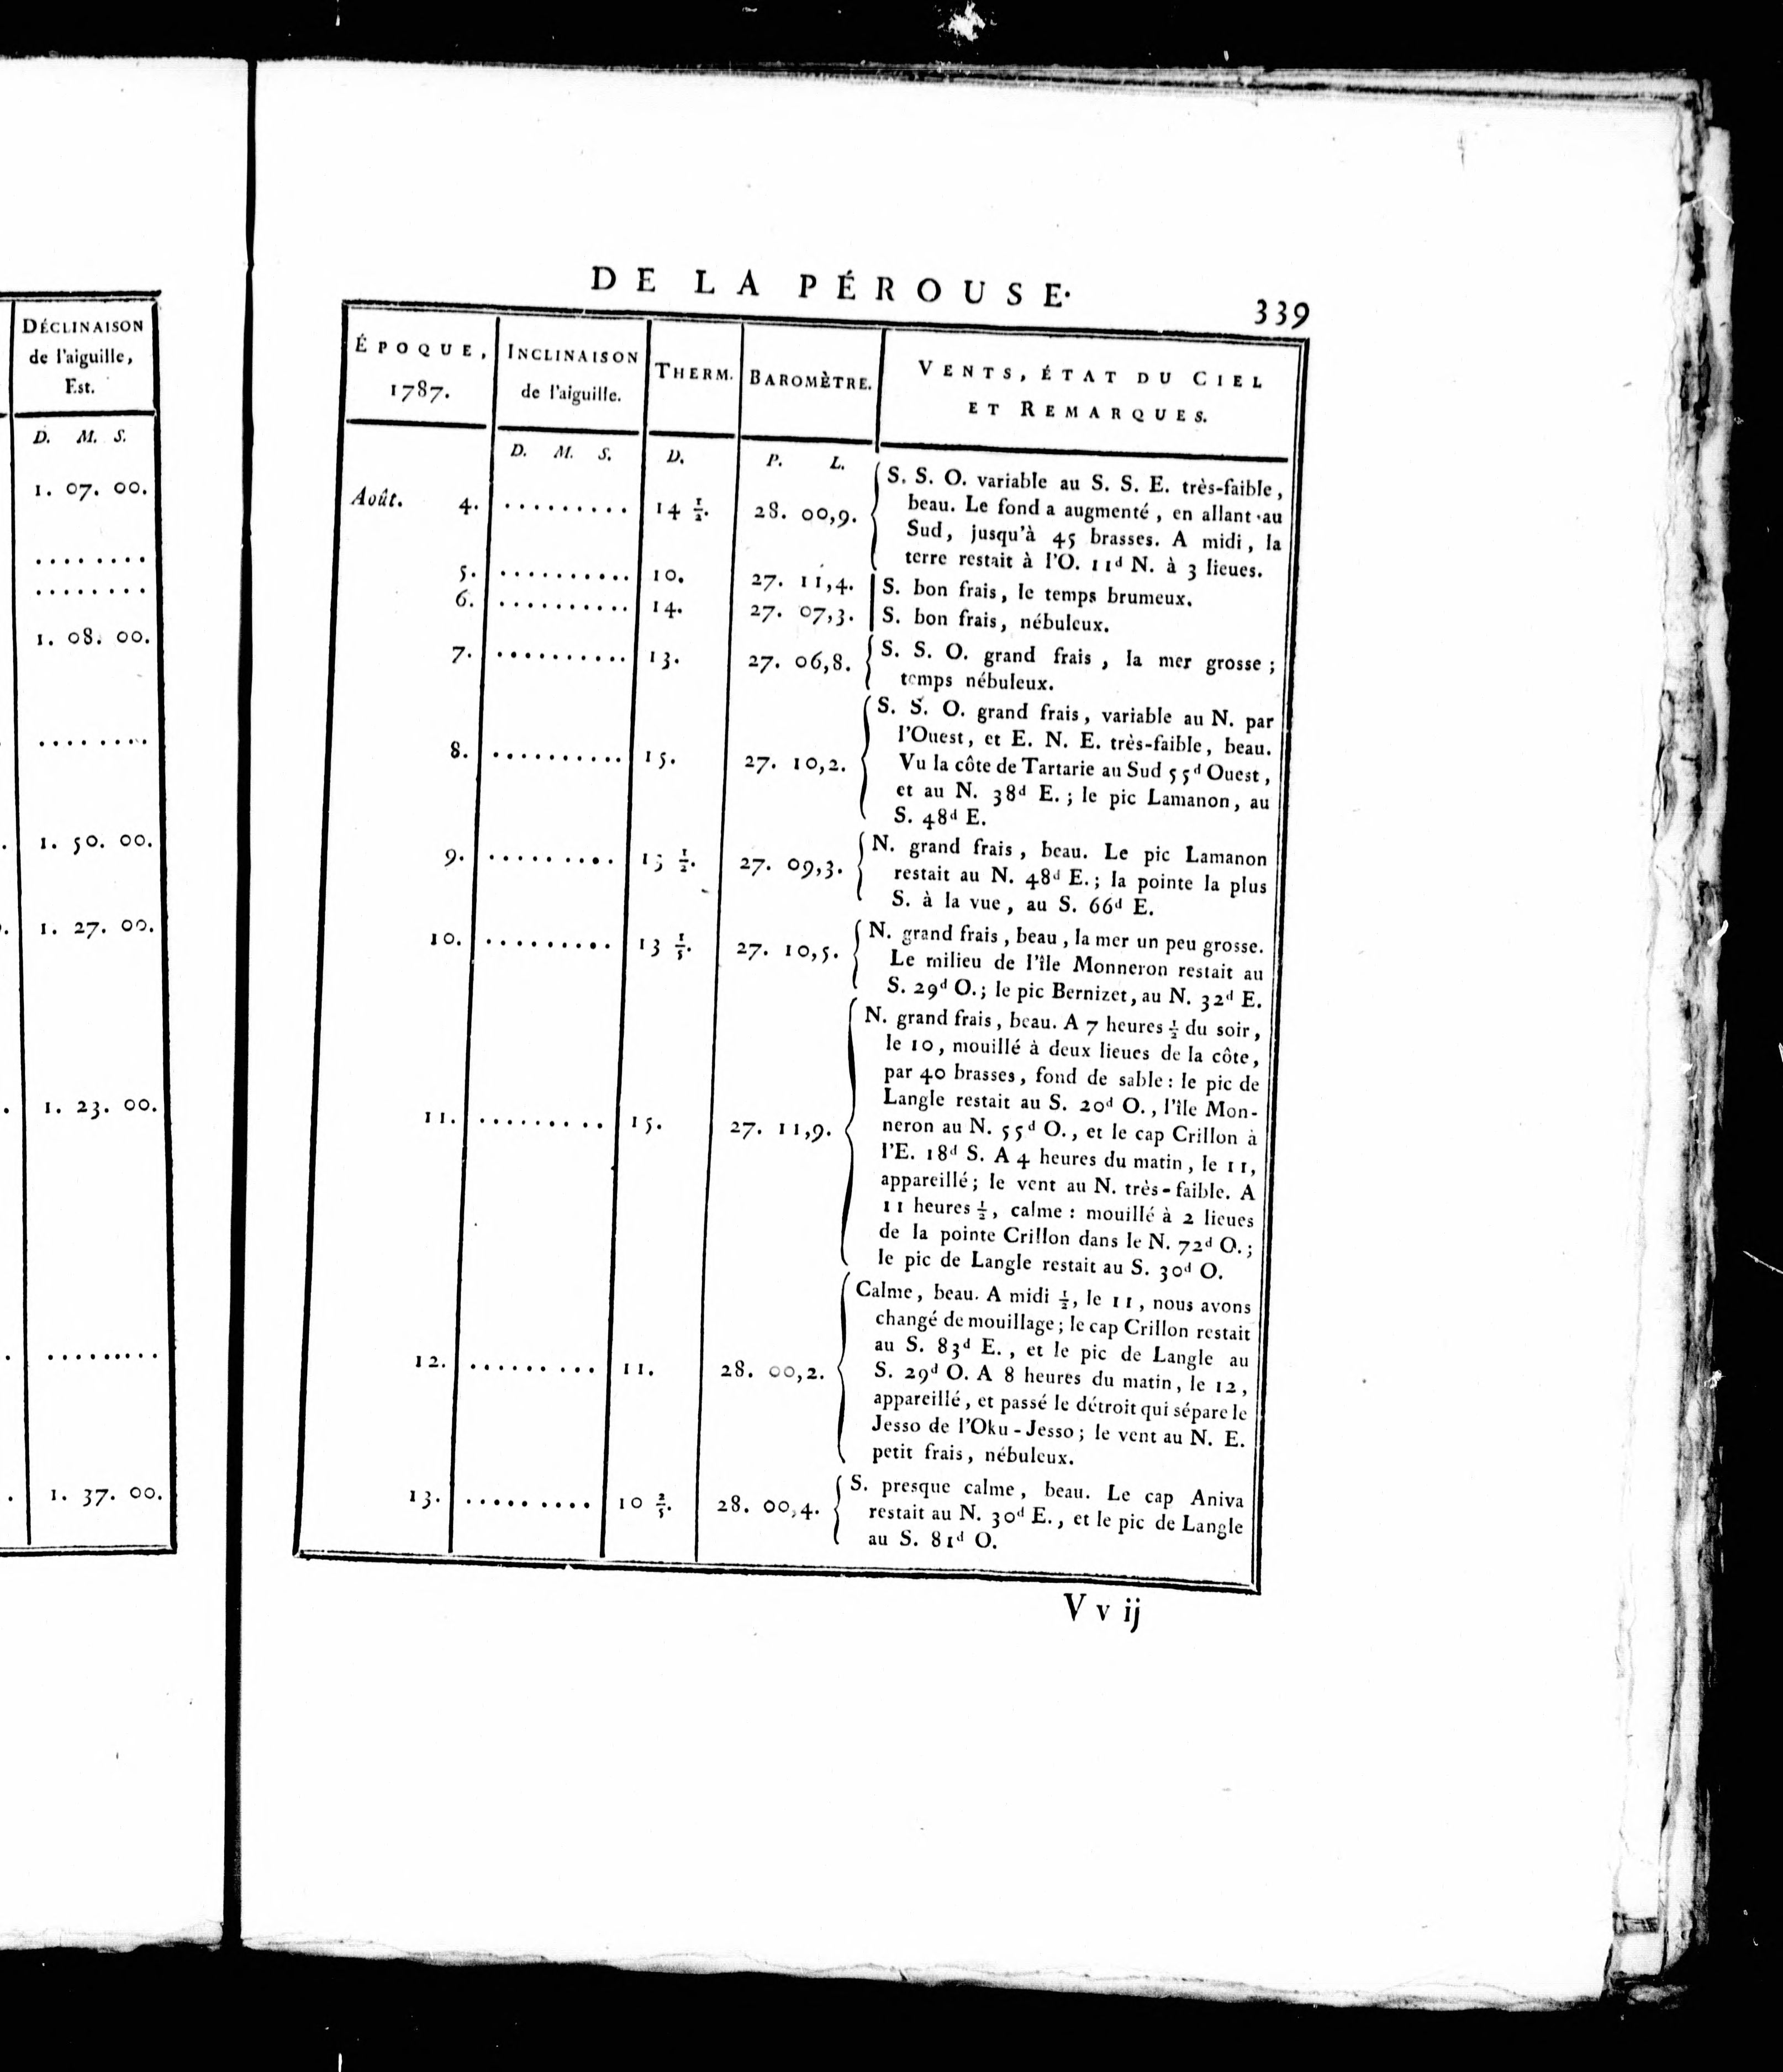 DÉCLINAISON
de l'aiguille,
Est.
D. M. S.
1. 07. 00.
........
........
1. 08. 00.
........
1. 50. 00.
1. 27. 00.
1. 23. 00.
.........
1. 37. 00.
DE LA PÉROUSE.
339
ÉPOQUE, 1787.
INCLINAISON de l'aiguille.
THERM.
BAROMÈTRE.
VENTS, ÉTAT DU CIEL
ET REMARQUES.
D. M. S. D. P. L.
Août. 4. ......... 14 ½. 28. 00,9.
S. S. O. variable au S. S. E. très-faible,
beau. Le fond a augmenté, en allant au
Sud, jusqu'à 45 brasses. A midi, la
terre restait à l'O. 11d N. à 3 lieues.
5. .......... 10. 27. 11,4. S. bon frais, le temps brumeux.
6. .......... 14. 27. 07,3. S. bon frais, nébuleux.
7. .......... 13. 27. 06,8.
S. S. O. grand frais, la mer grosse;
temps nébuleux.
8. .......... 15. 27. 10,2.
S. S. O. grand frais, variable au N. par
l'Ouest, et E. N. E. très-faible, beau.
Vu la côte de Tartarie au Sud 55d Ouest,
et au N. 38d E.; le pic Lamanon, au
S. 48d E.
9. ......... ½. 27. 09,3.
N. grand frais, beau. Le pic Lamanon
restait au N. 48d E.; la pointe la plus
S. à la vue, au S. 66d E.
10. ......... 13 1/5. 27. 10,5.
N. grand frais, beau, la mer un peu grosse.
Le milieu de l'île Monneron restait au
S. 29d O.; le pic Bernizet, au N. 32d E.
11. ......... 15. 27. 11,9.
N. grand frais, beau. A 7 heures ½ du soir,
le 10, mouillé à deux lieues de la côte,
par 40 brasses, fond de sable: le pic de
Langle restait au S. 20d O., l'île Mon-
neron au N. 55d O., et le cap Crillon à
l'E. 18d S. A 4 heures du matin, le 11,
appareillé; le vent au N. très-faible. A
11 heures ½, calme: mouillé à 2 lieues
de la pointe Crillon dans le N. 72d O.;
le pic de Langle restait au S. 30d O.
12. ......... 11. 28. 00,2.
Calme, beau. A midi ½, le 11, nous avons
changé de mouillage; le cap Crillon restait
au S. 83d E., et le pic de Langle au
S. 29d O. A 8 heures du matin, le 12,
appareillé, et passé le détroit qui sépare le
Jesso de l'Oku-Jesso; le vent au N. E.
petit frais, nébuleux.
13. ......... 10 2/5. 28. 00,4.
S. presque calme, beau. Le cap Aniva
restait au N. 30d E., et le pic de Langle
au S. 81d O.
V v ij